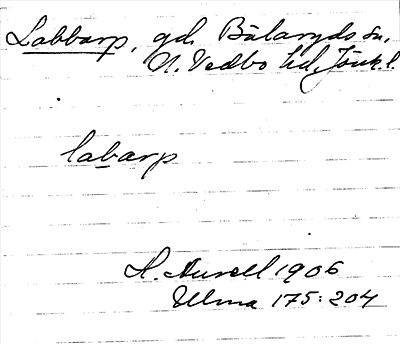 Labbarp, gd. Bälaryds sn,
N. Vedbo hd, Jönk. l.
labarp
H. Aurell 1906
Ulma 175:204